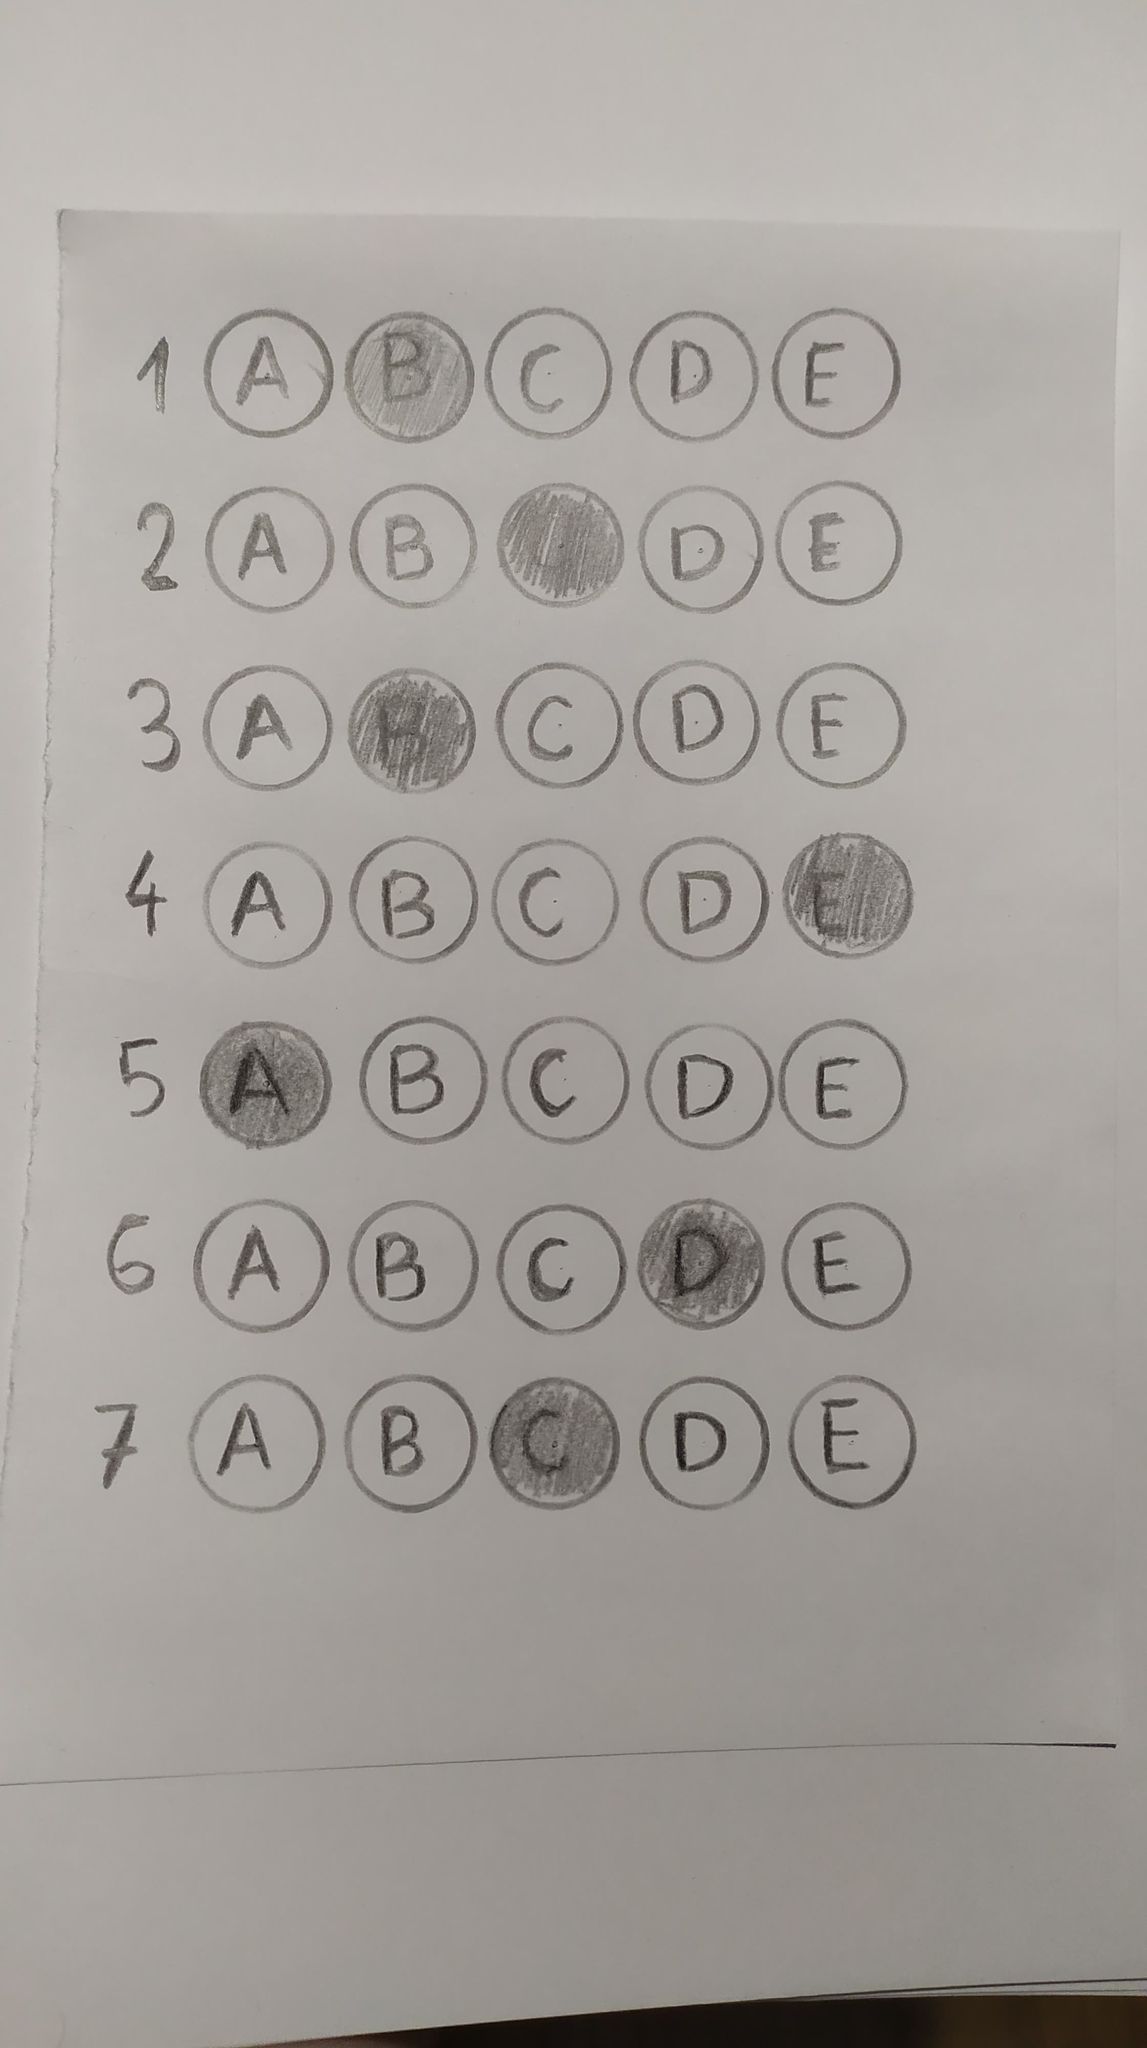 1 A B C D E
2 A B D E
3 A B C D E
4 A B C D E
5 A B C D E
6 A B C D E
7 A B C D E